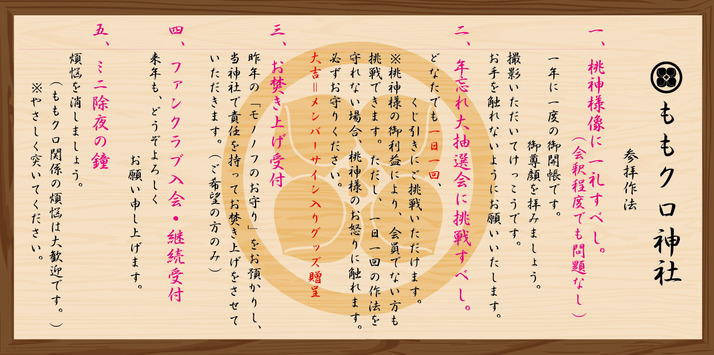 ももクロ神社
参拝作法
一、桃神様像に一礼すべし。
（会釈程度でも問題なし）
一年に一度の御開帳です。
御尊顔を拝みましょう。
撮影いただいてけっこうです。
お手を触れないようにお願いいたします。
二、年忘れ大抽選会に挑戦すべし。
どなたでも一日一回、
くじ引きにご挑戦いただけます。
※桃神様の御利益により、会員でない方も
挑戦できます。ただし、一日一回の作法を
守れない場合、桃神様のお怒りに触れます。
必ずお守りください。
大吉＝メンバーサイン入りグッズ贈呈
三、お焚き上げ受付
昨年の「モノノフのお守り」をお預かりし、
当神社で責任を持ってお焚き上げをさせて
いただきます。（ご希望の方のみ）
四、ファンクラブ入会・継続受付
来年も、どうぞよろしく
お願い申し上げます。
五、ミニ除夜の鐘
煩悩を消しましょう。
（ももクロ関係の煩悩は大歓迎です。）
※やさしく突いてください。